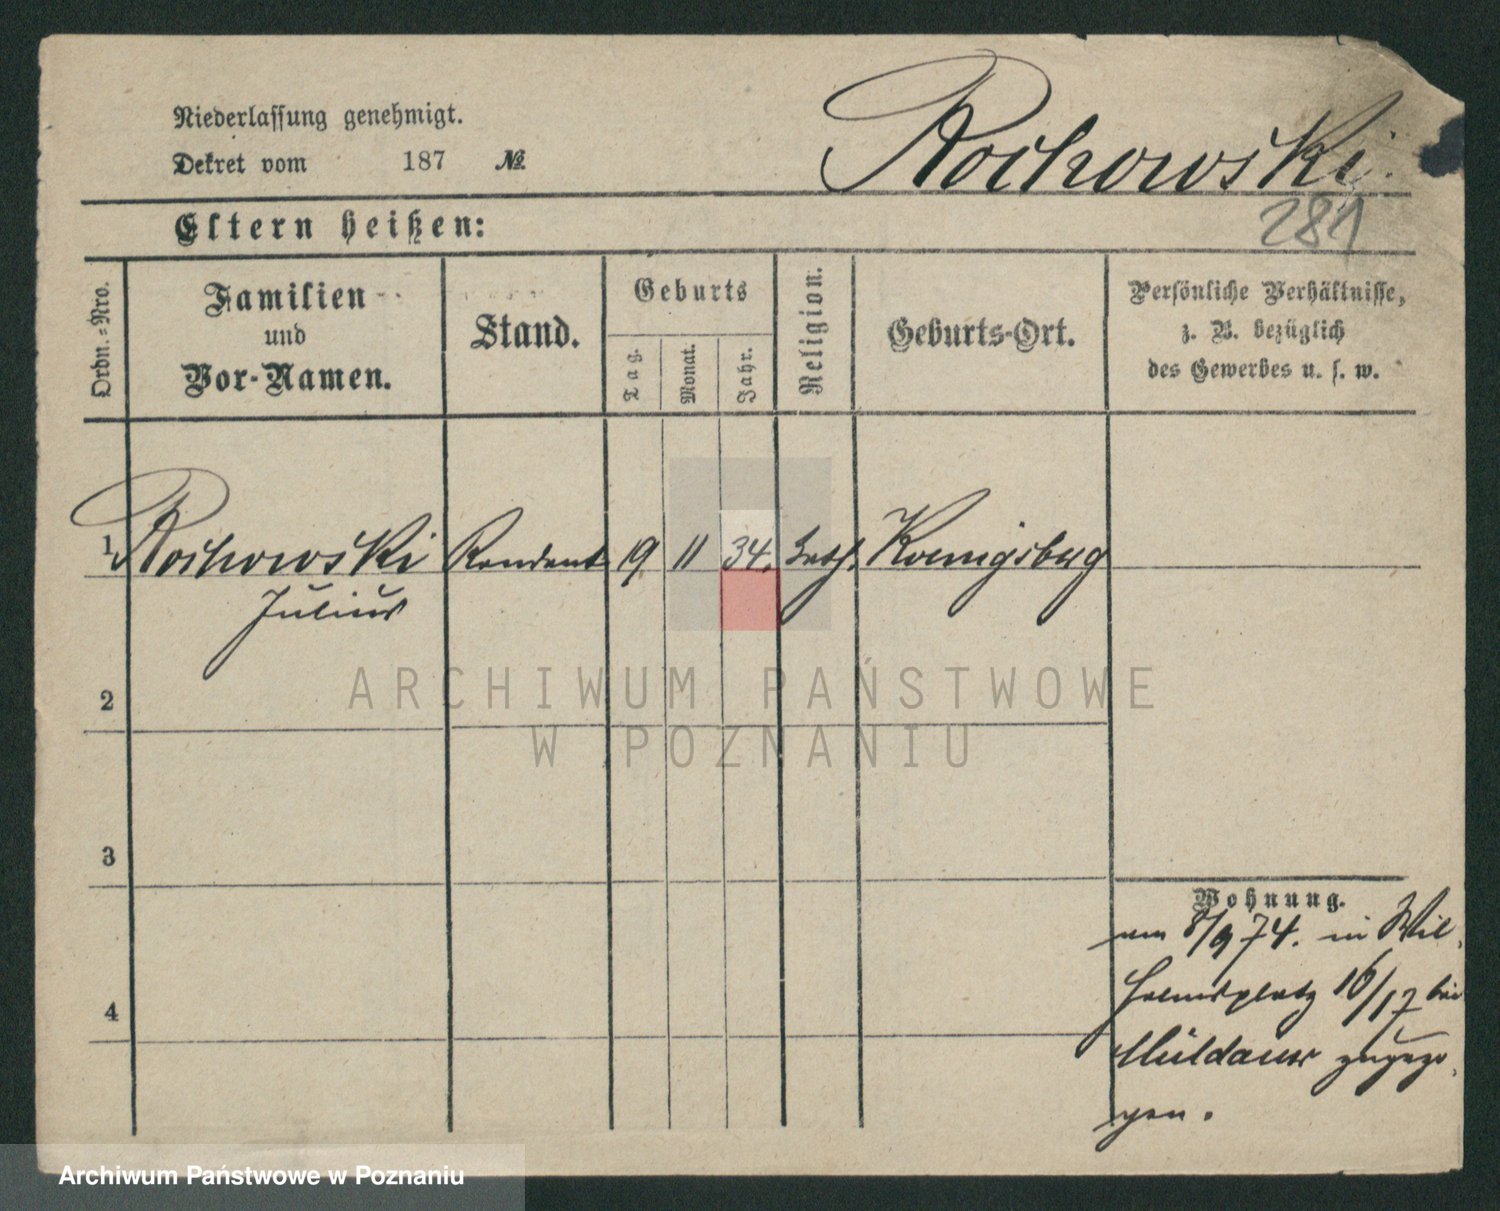 Niederlassung genehmigt.
Dekret vom 187 №
Rochowski.
281
Eltern heißen:
Ordn.=Nro.
Familien
und
Vor-Namen.
Stand.
Geburts
Tag.
Monat.
Jahr.
Religion.
Geburts-Ort.
Persönliche Verhältnisse,
z. B. bezüglich
des Gewerbes u. s. w.
1 Rochowski Rendant 19 11 34. Koenigsberg
Julius
2
ARCHIWUM PAŃSTWOWE
W POZNANIU
3
Wohnung.
am 8/9 74. in Wil-
helmsplatz 16/17 bei
Müldaur zugezo-
gen.
4
Archiwum Państwowe w Poznaniu